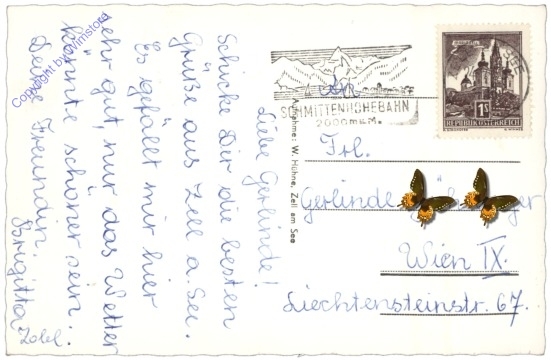 Liebe Gerlinde!
Schicke Dir die besten
Grüße aus Zell a. See.
Es gefällt mir hier
sehr gut, nur das Wetter
könnte schöner sein.
Deine Freundin
Brigitta
Copyright by Wimstore
SCHMITTENHÖHEBAHN
2000m ü.M.
1S
REPUBLIK ÖSTERREICH
Aufnahme: W. Hühne, Zell am See
Frl.
Gerlinde
Wien IX.
Liechtensteinstr. 67.